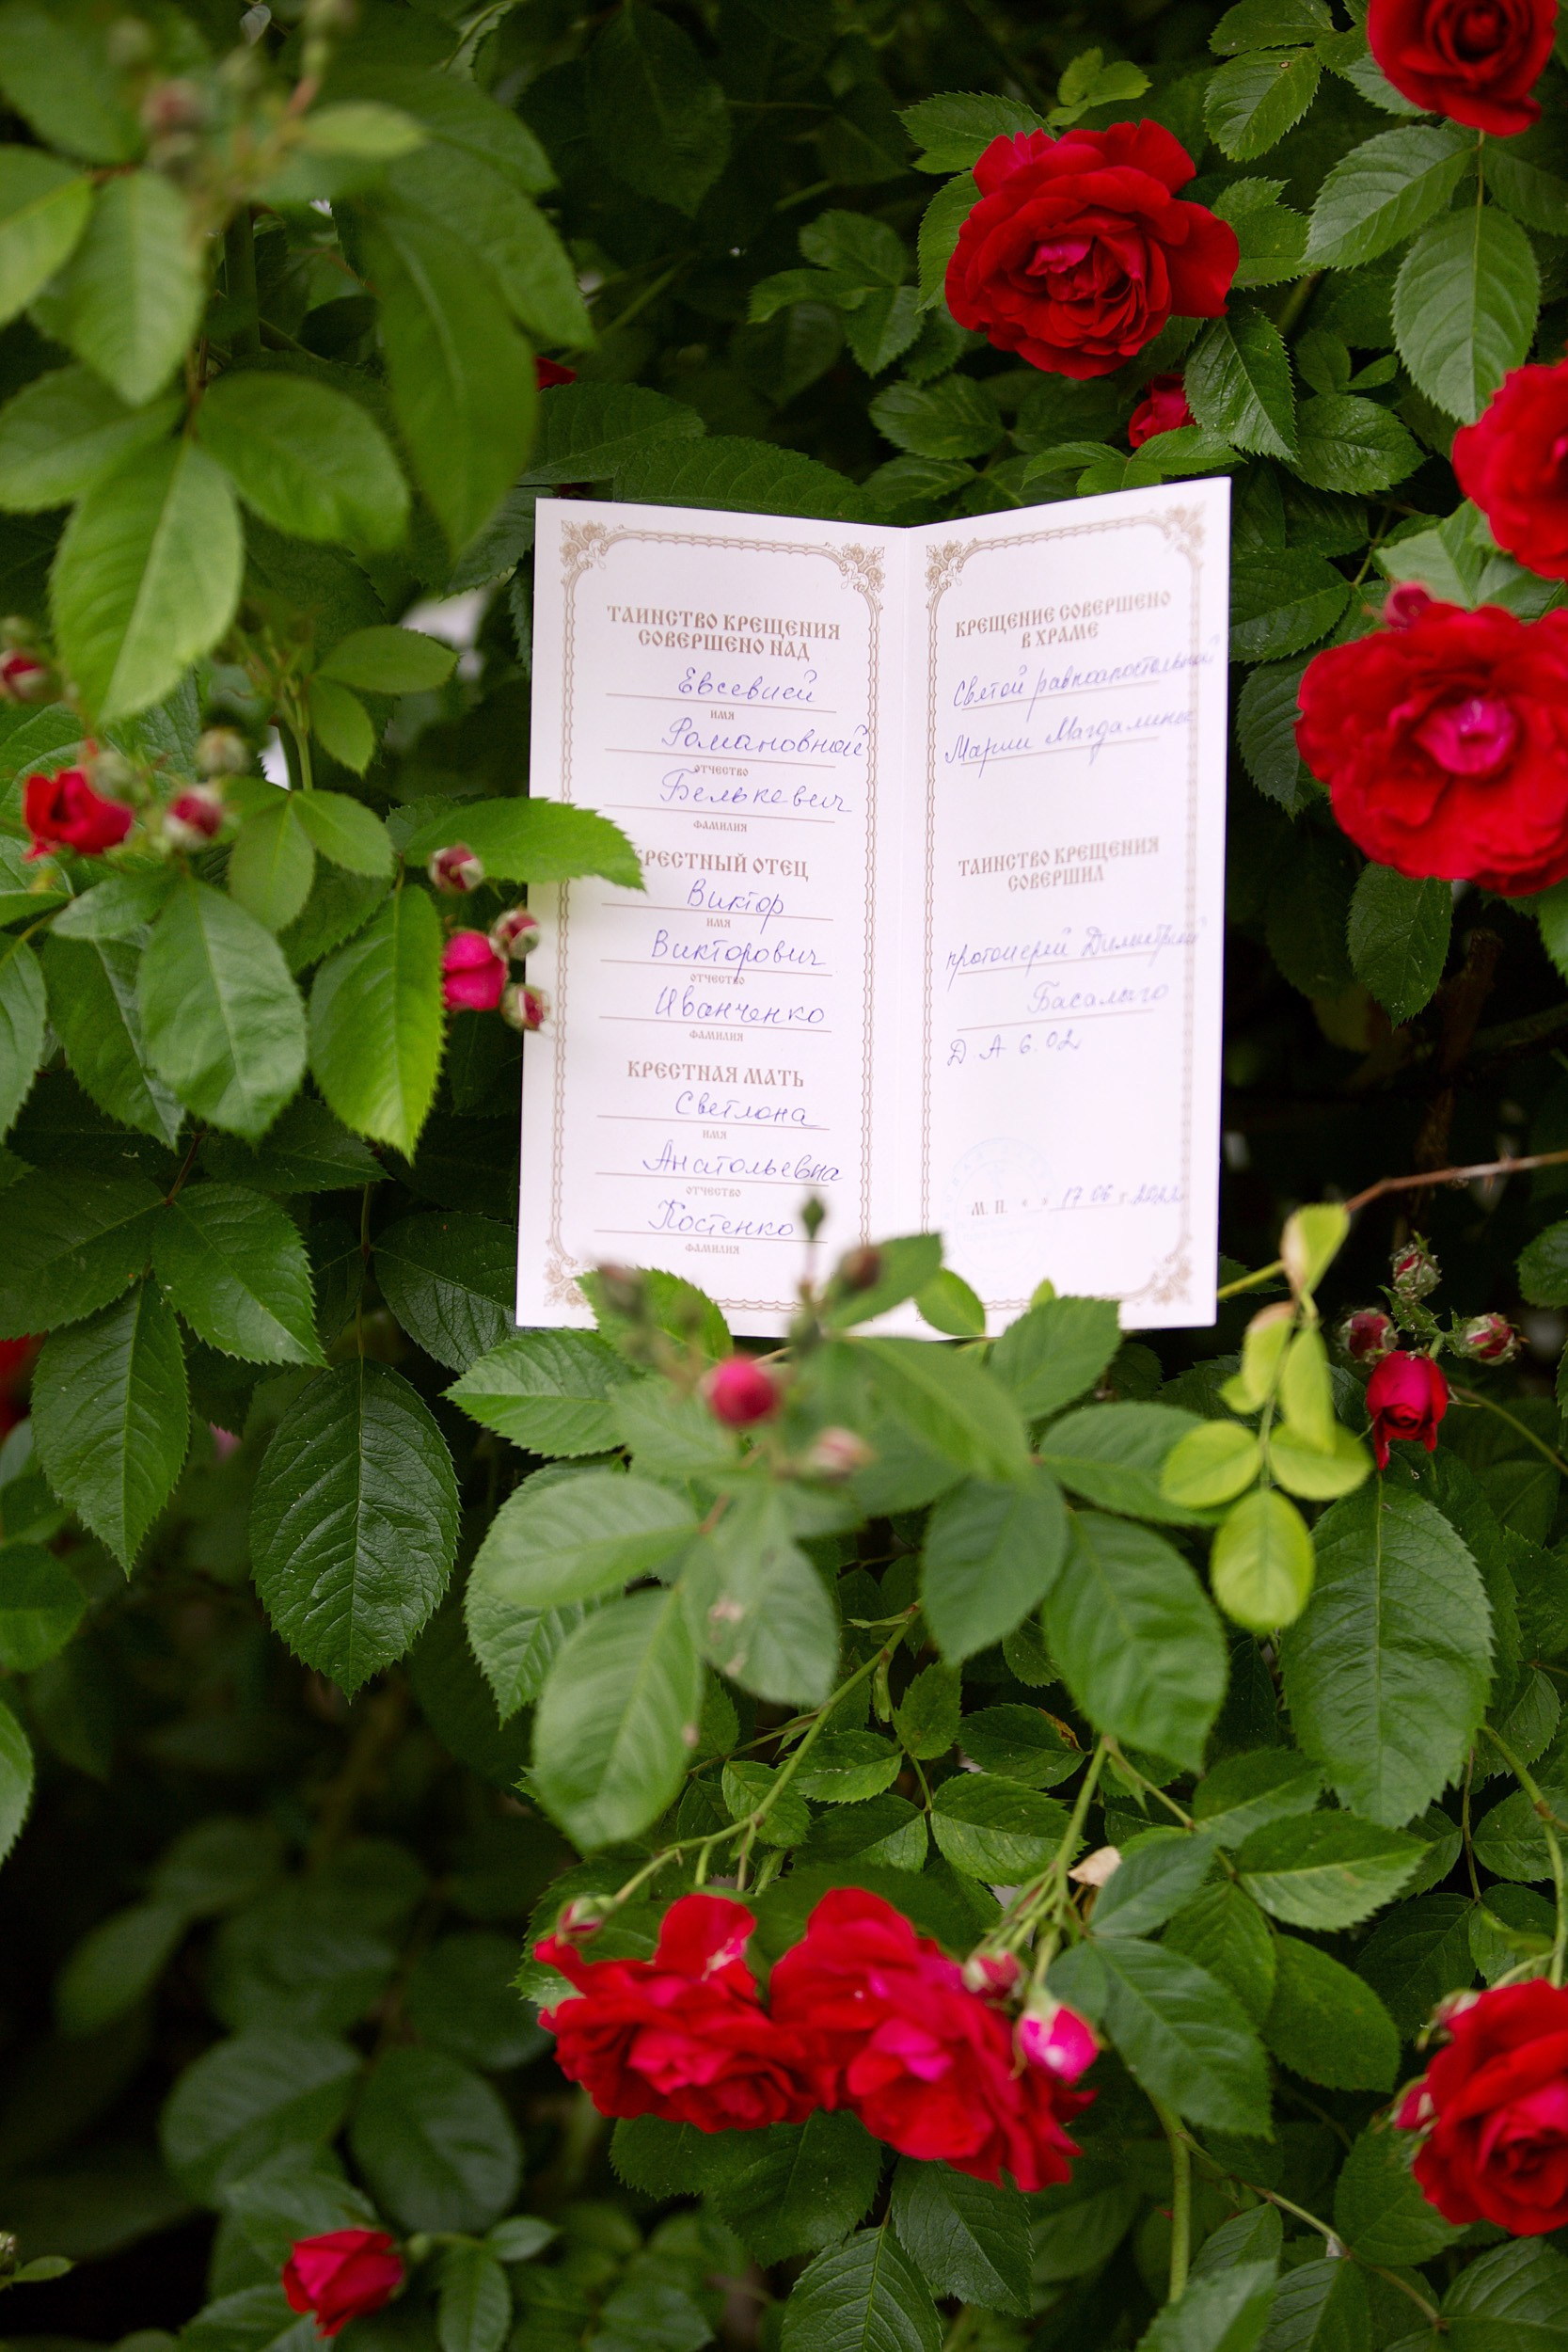 ТАИНСТВО КРЕЩЕНИЯ
СОВЕРШЕНО НАД
Евсевией
ИМЯ
Романовной
ОТЧЕСТВО
Белькевич
ФАМИЛИЯ
КРЕСТНЫЙ ОТЕЦ
Виктор
ИМЯ
Викторович
ОТЧЕСТВО
Иванченко
ФАМИЛИЯ
КРЕСТНАЯ МАТЬ
Светлана
ИМЯ
Анатольевна
ОТЧЕСТВО
Костенко
ФАМИЛИЯ
КРЕЩЕНИЕ СОВЕРШЕНО
В ХРАМЕ
Святой равноапостольной
Марии Магдалины
ТАИНСТВО КРЕЩЕНИЯ
СОВЕРШИЛ
протоиерей Димитрий
Басалыго
Д А 6.02
М. П. « » 17 06